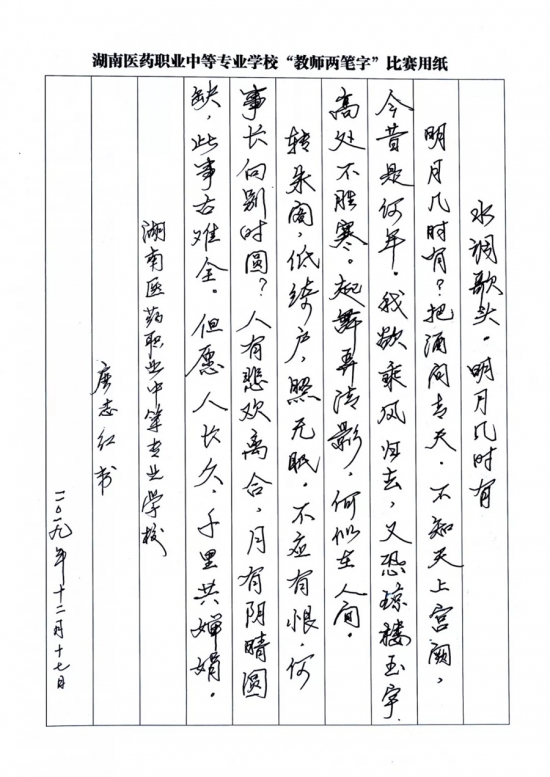 湖南医药职业中等专业学校“教师两笔字”比赛用纸
水调歌头。明月几时有
明月几时有？把酒问青天。不知天上宫阙，
今昔是何年。我欲乘风归去，又恐琼楼玉宇，
高处不胜寒。起舞弄清影，何似在人间。
转朱阁，低绮户，照无眠。不应有恨，何
事长向别时圆？人有悲欢离合，月有阴晴圆
缺，此事古难全。但愿人长久，千里共婵娟。
湖南医药职业中等专业学校
唐志红书
二〇一九年十二月十七日